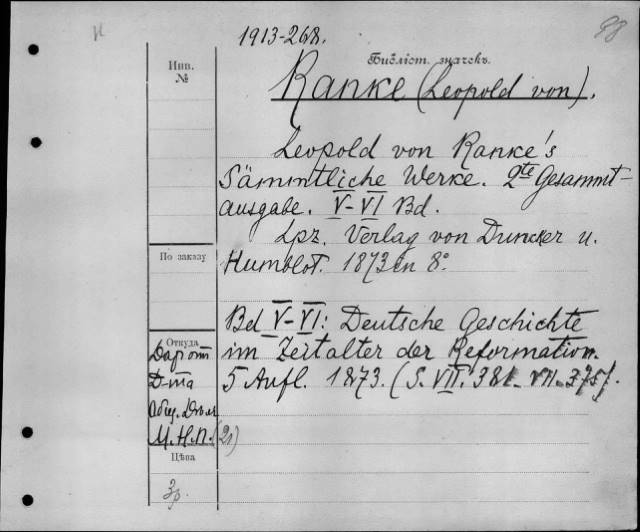 1913-268.
88
Инв.
№
Библіот. значекъ.
Ranke (Leopold von).
Leopold von Ranke's
Sämmtliche Werke. 2te Gesammt-
ausgabe. V-VI Bd.
Lpz. Verlag von Duncker u.
Humblot. 1873 in 8º
По заказу
Bd V-VI: Deutsche Geschichte
im Zeitalter der Reformation.
5 Aufl. 1873. (S. VII. 381 - VII. 375).
Откуда
Дар отъ
Д-та
Общ. Дѣлъ
М.Н.П. (21)
Цѣна
3р.